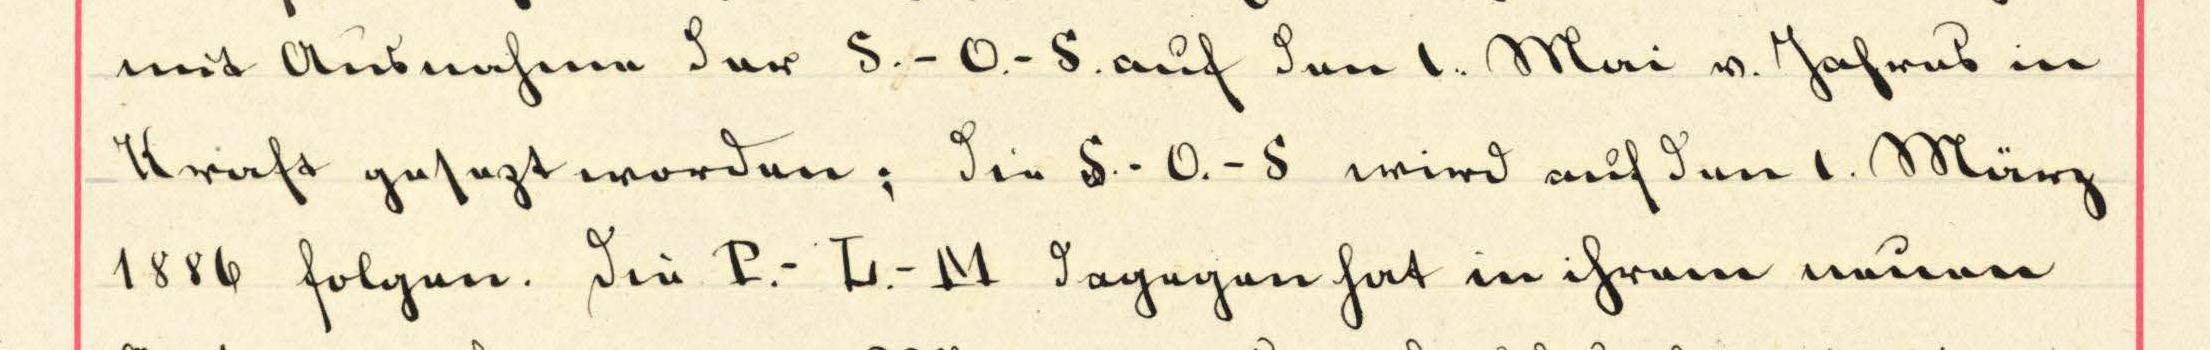 mit Ausnahme der S.-O.-S. auf den 1. Mai v. Jahres in
Kraft gesezt worden; die S.-O.-S wird auf den 1. März
1886 folgen. Die P.-L.-M dagegen hat in ihrem neuen